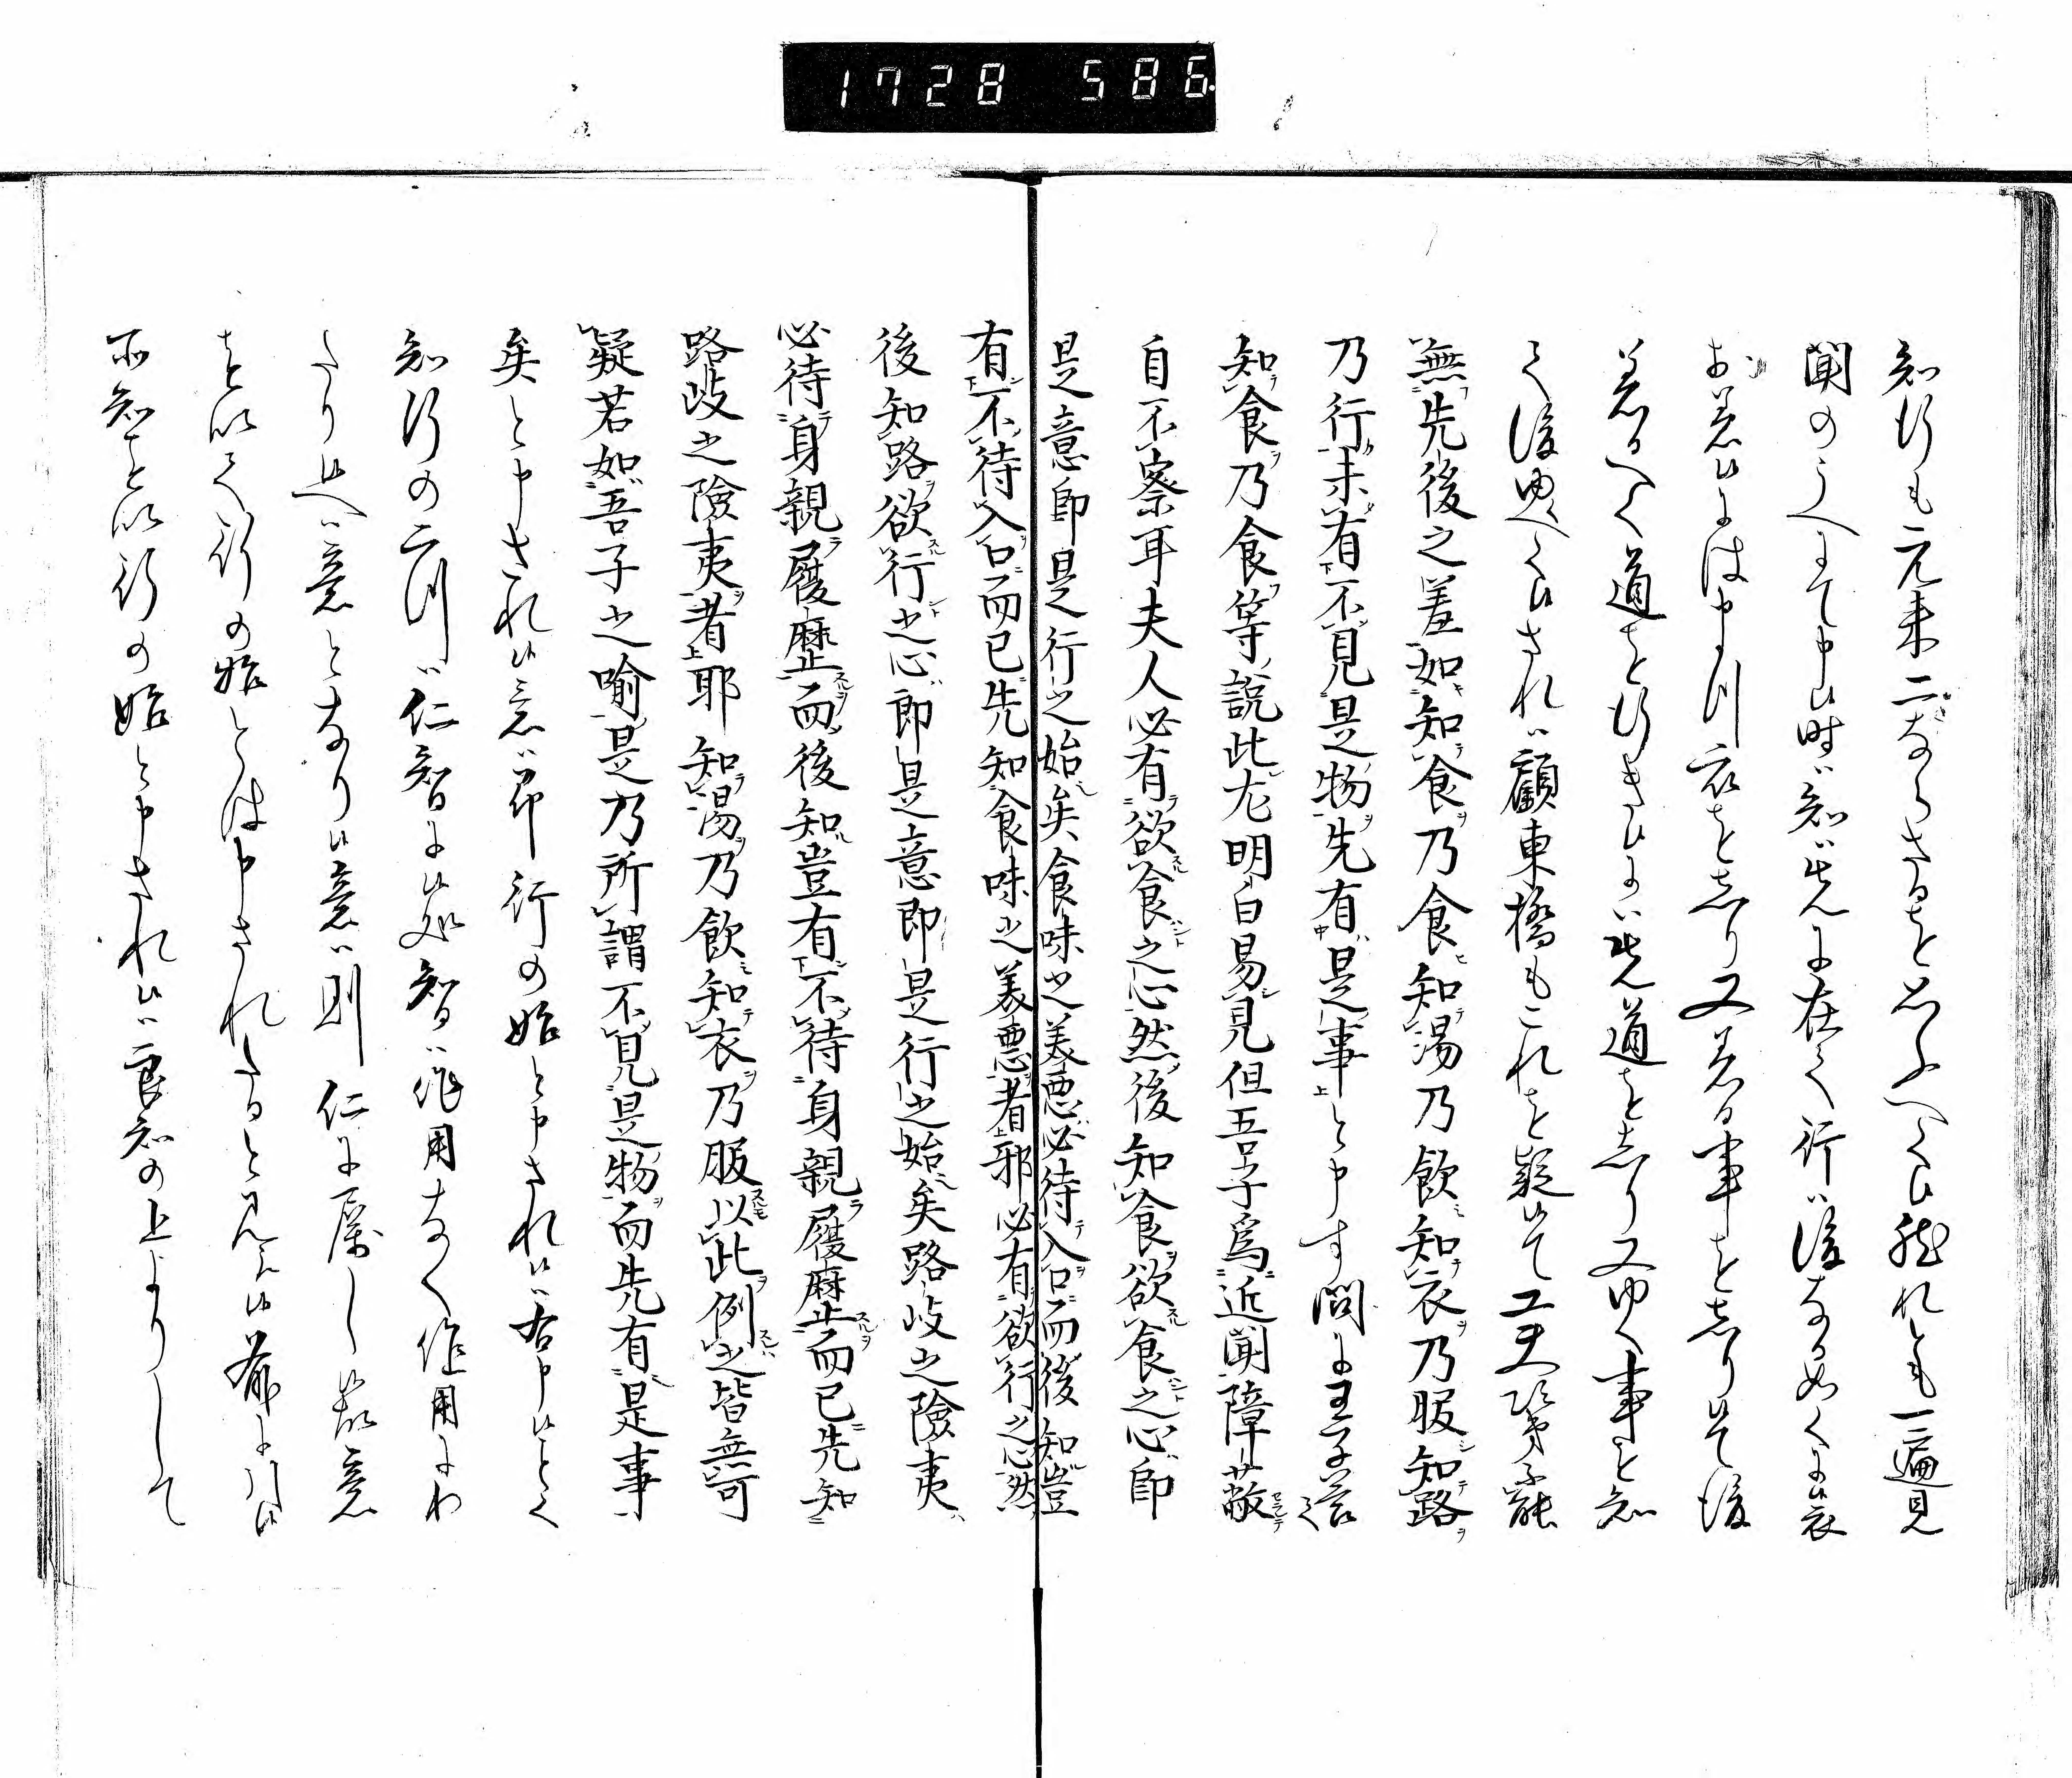 1728 586
知行も元来二ならさるを思ふへく候然れとも一遍見
聞のうへにて申候時ハ知ハ先に在て行ハ後なるかことくに候衣
を着候には申つ川衣をしり又着る事をしり候て後
着るへく道を行き候にハ先道をしり又ゆく事を知
て後ゆくへく候されハ顧東橋もこれを疑候て工夫次第不能
無先後之差如知食乃食知湯乃飲知衣乃服知路
乃行未有不見是物先有是事と申す問に王子答て
知食乃食等説此尤明白易見但吾子為近聞障蔽
自不察耳夫人必有欲食之心然後知食欲食之心即
是意即是行之始矣食味之美悪必待入口而後知豈
有不待入口而已先知食味之美悪者邪必有欲行之心然
後知路欲行之心即是意即是行之始矣路岐之険夷
必待身親履歴而後知豈有不待身親履歴而已先知
路岐之険夷者耶知湯乃飲知衣乃服以此例之皆無可
疑若如吾子之喩是乃所謂不見是物而先有是事
矣と申され候意ハ即行の始と申され候ハ右申候ことく
知行の二川ハ仁智に候処智ハ作用なく作用にわ
たり候へハ意となり候意ハ則仁に属し候故意
を以て行の始とは申されたると見え候前に引候
亦知を以行の始と申され候ハ良知の上よりして